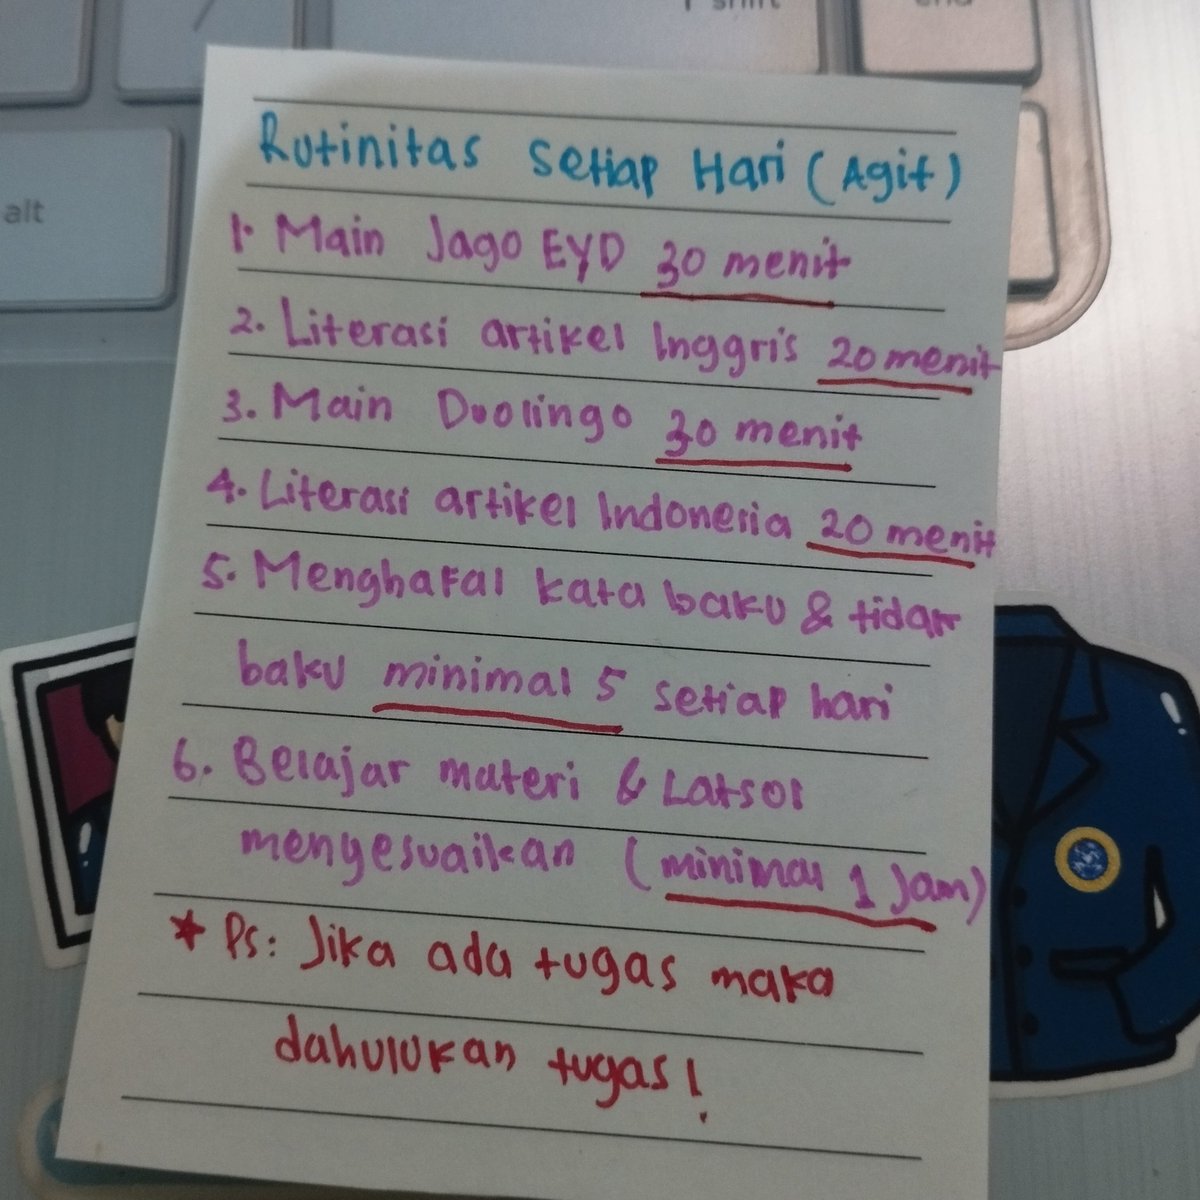 shift
end
alt
Rutinitas Setiap Hari (Agit)
1. Main Jago EYD 30 menit
2. Literasi artikel Inggris 20 menit
3. Main Duolingo 30 menit
4. Literasi artikel Indonesia 20 menit
5. Menghafal kata baku & tidak
baku minimal 5 setiap hari
6. Belajar materi & Latsol
menyesuaikan (minimal 1 jam)
* Ps: Jika ada tugas maka
dahulukan tugas!